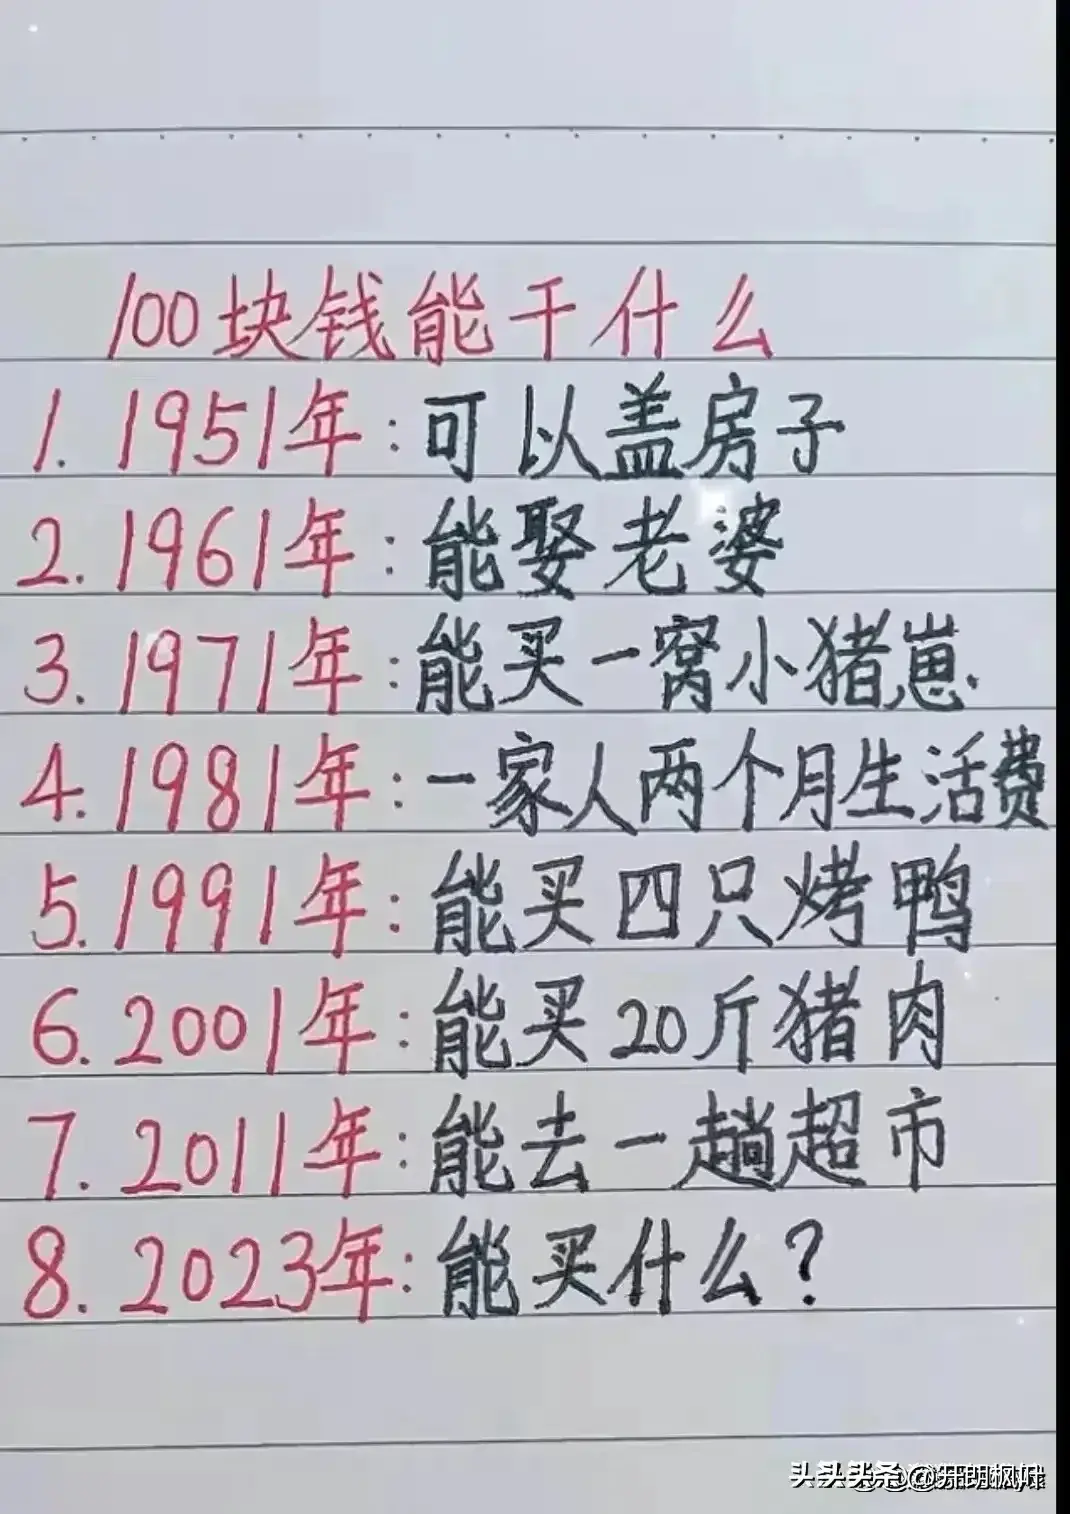 100块钱能干什么
1. 1951年:可以盖房子
2. 1961年:能娶老婆
3. 1971年:能买一窝小猪崽.
4. 1981年:一家人两个月生活费
5. 1991年:能买四只烤鸭
6. 2001年:能买20斤猪肉
7. 2011年:能去一趟超市
8. 2023年:能买什么?
头头条条 @开朗枫叶